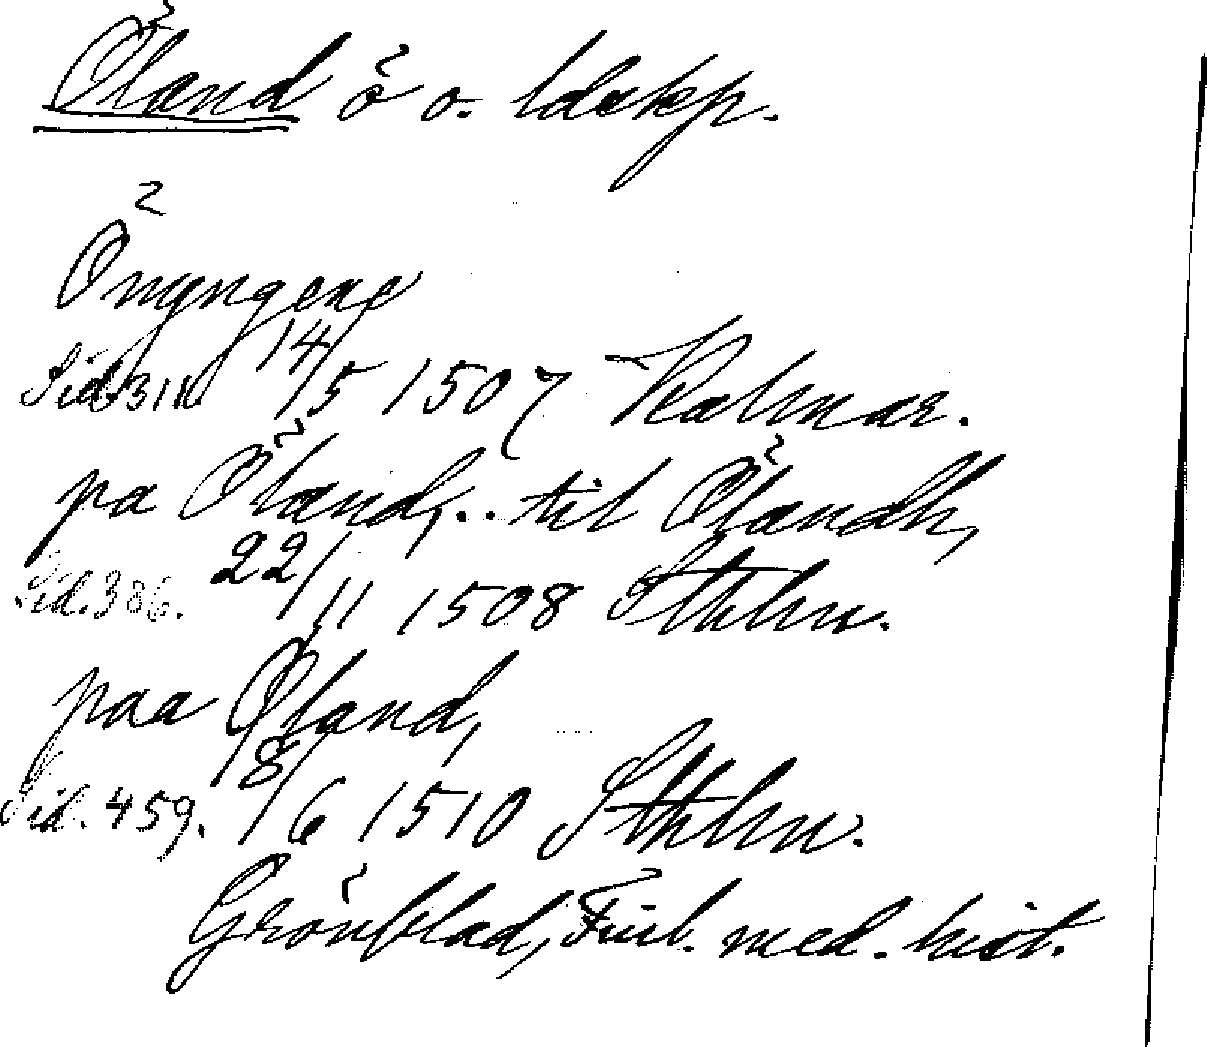 Öland ö o. ldskp.
Önyngene
Sid 311 14/5 1507 Kalmar.
pa Öland,.. til Ölandh,
Sid. 386. 22/11 1508 Sthlm.
paa Øland,
Sid. 459. 18/6 1510 Sthlm.
Grönblad, Finl. med. hist.